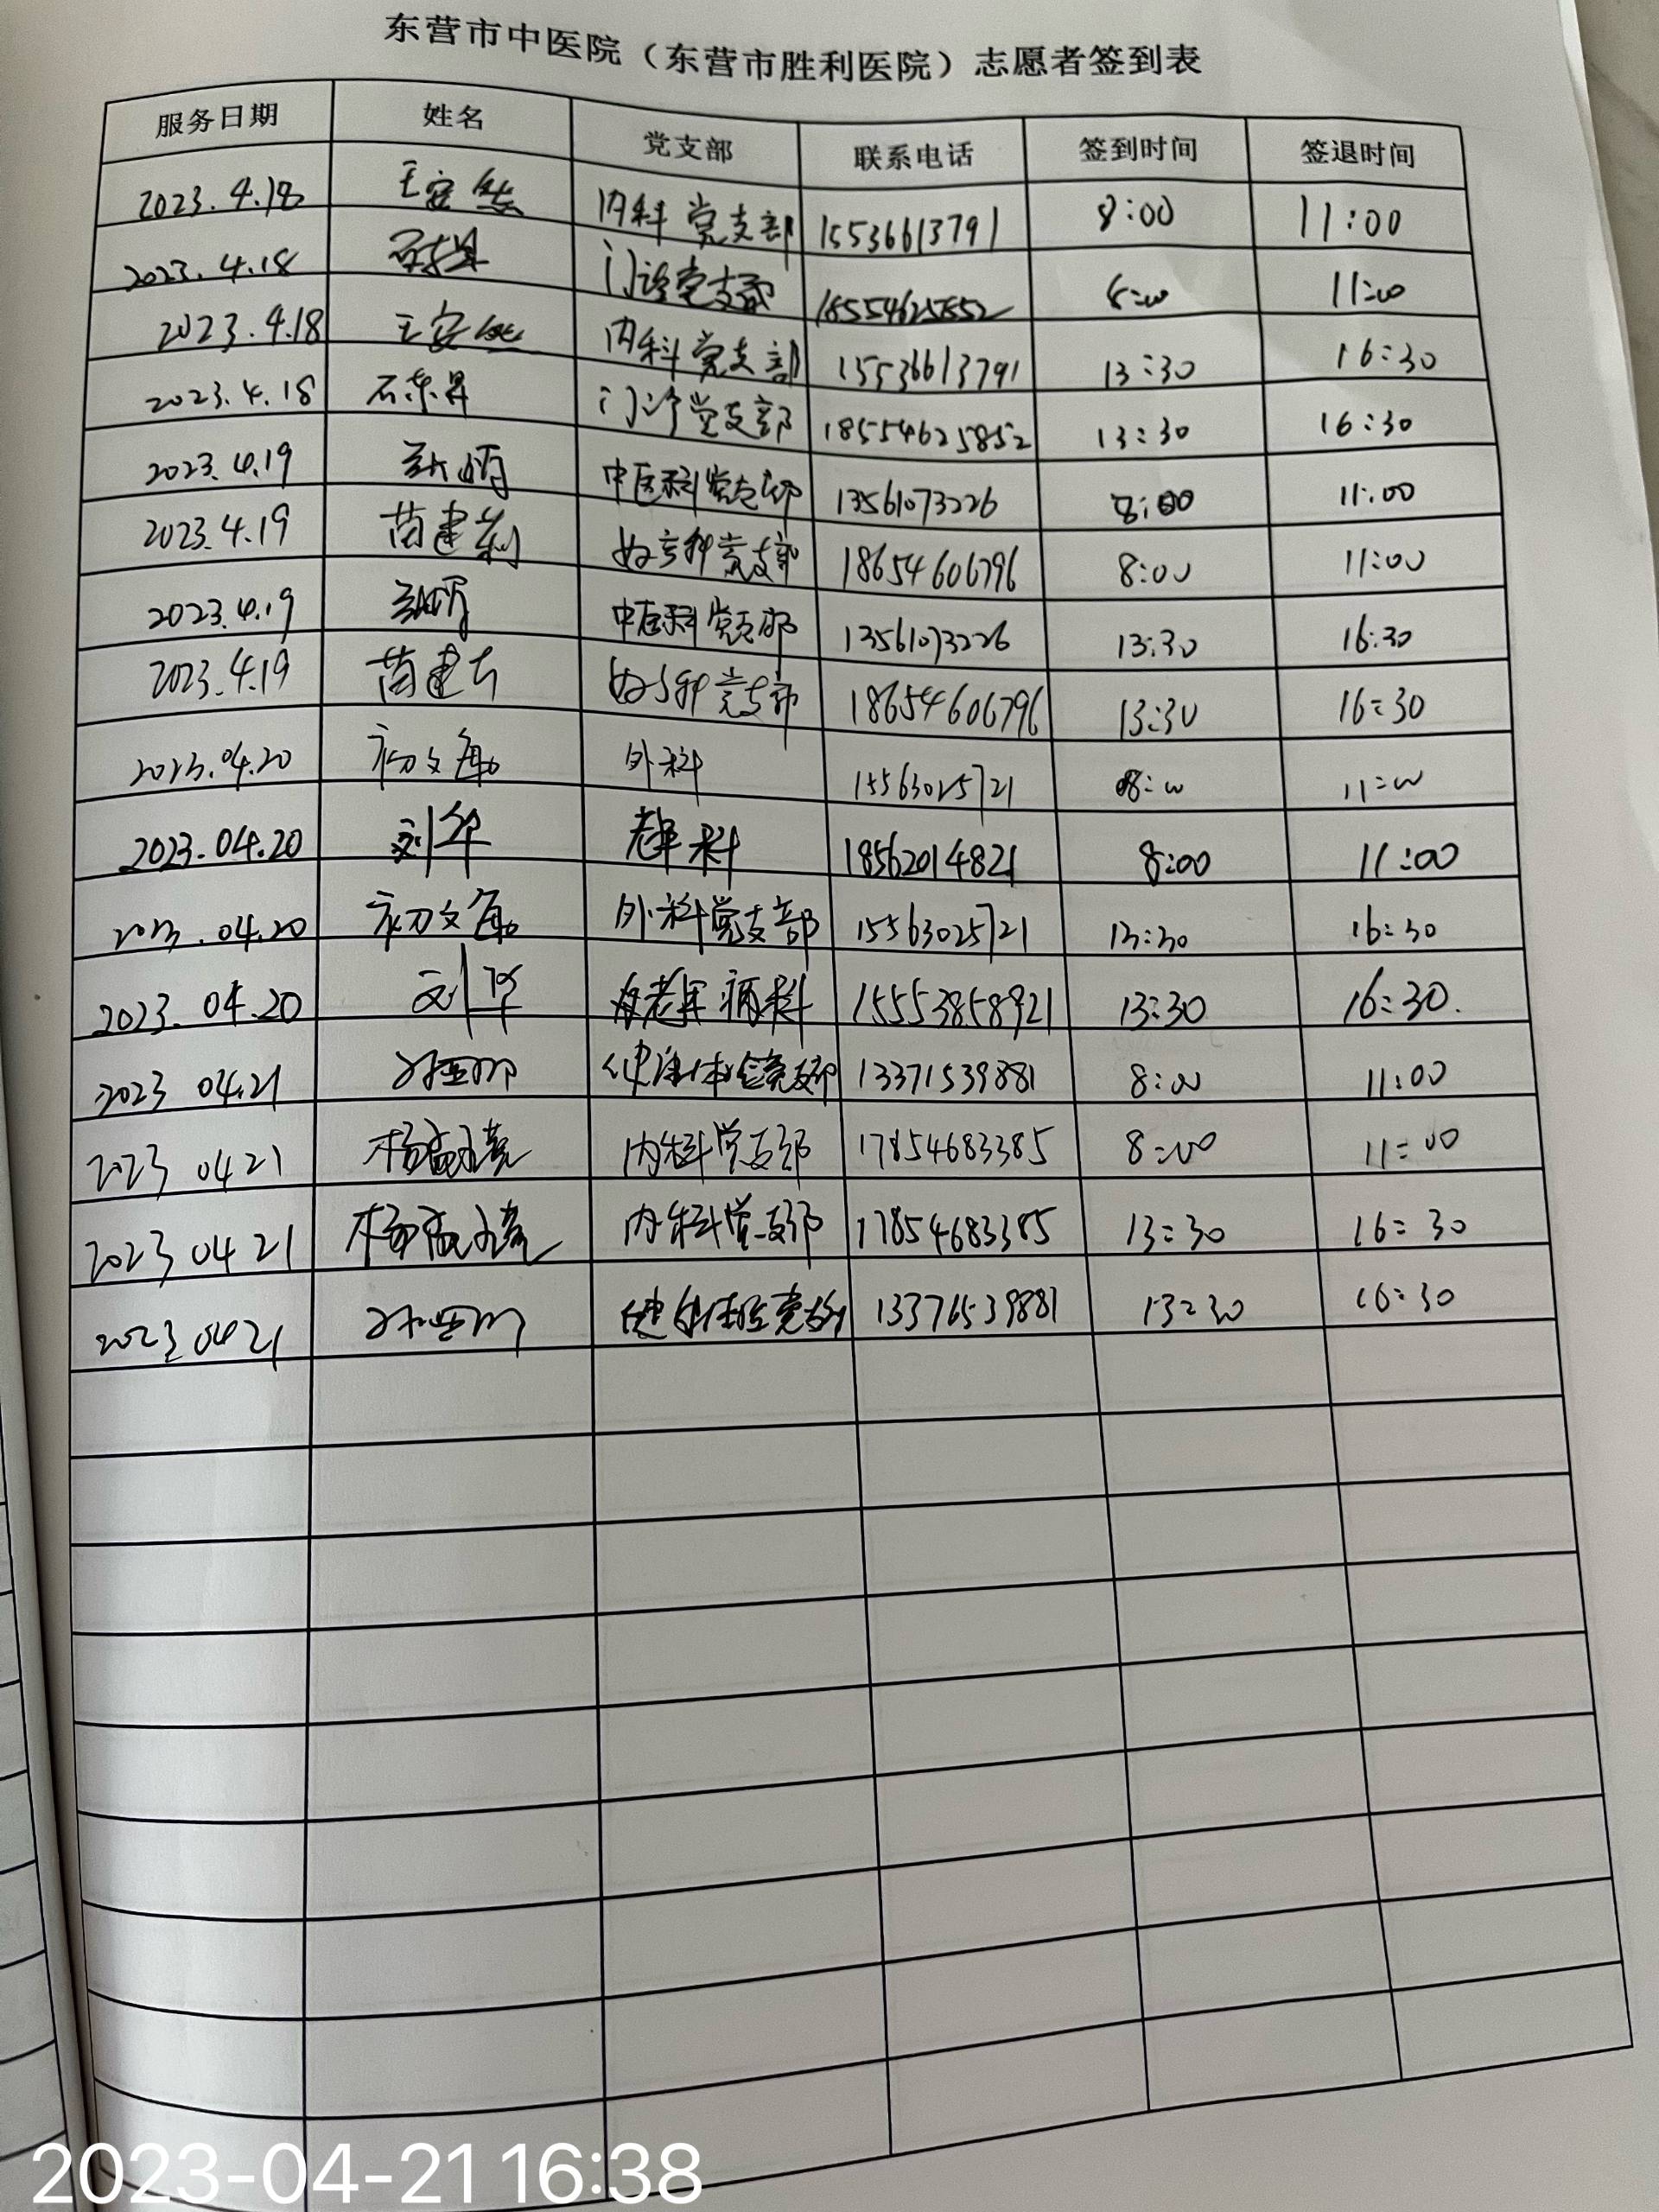 东营市中医院（东营市胜利医院）志愿者签到表
服务日期 姓名 党支部 联系电话 签到时间 签退时间
2023.4.18 王安 内科党支部 15536613791 8:00 11:00
2023.4.18 石东昇 门诊党支部 18554625852 8:00 11:00
2023.4.18 王安 内科党支部 15536613791 13:30 16:30
2023.4.18 石东昇 门诊党支部 18554625852 13:30 16:30
2023.4.19 中医科党支部 13561073226 8:00 11:00
2023.4.19 苗建 妇产科党支部 18654606796 8:00 11:00
2023.4.19 中医科党支部 13561073226 13:30 16:30
2023.4.19 苗建 妇产科党支部 18654606796 13:30 16:30
2023.04.20 初文 外科 15563025721 8:00 11:00
2023.04.20 刘华 科 18562014821 8:00 11:00
2023.04.20 初文 外科党支部 15563025721 13:30 16:30
2023.04.20 刘华 老年病科 15553858921 13:30 16:30.
2023 04.21 健康体检党支部 13371539881 8:00 11:00
2023 04 21 杨 内科党支部 17854683385 8:00 11:00
2023 04 21 杨 内科党支部 17854683385 13:30 16:30
2023 04 21 健康体检党支部 13376539881 13:30 16:30
2023-04-21 16:38